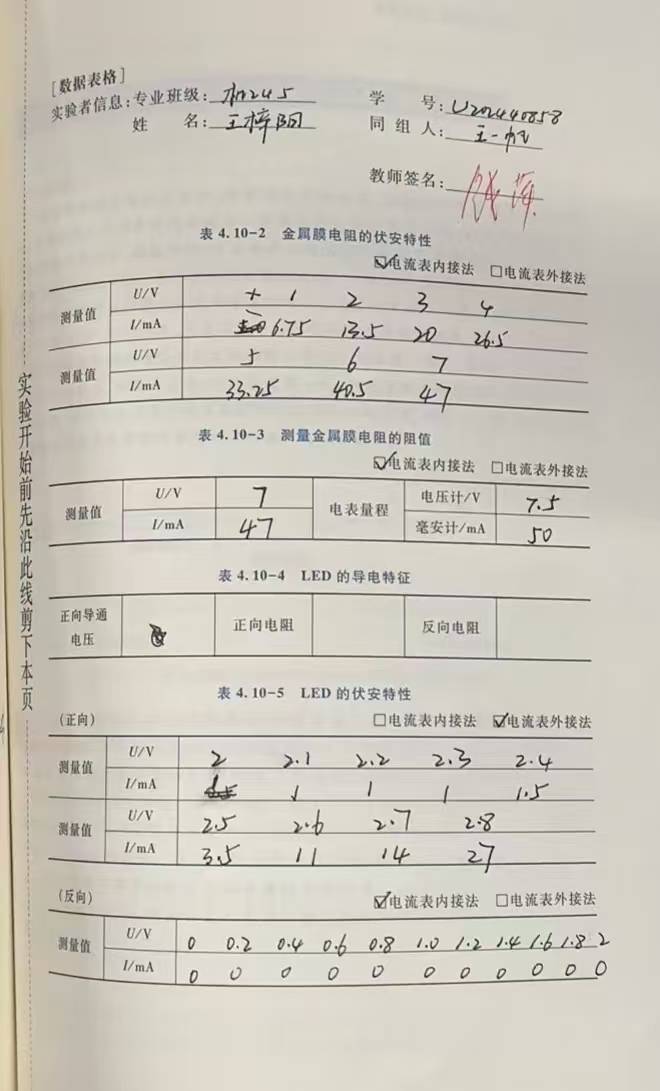 [数据表格]
实验者信息:专业班级: 机245 学 号: U202440858
姓 名: 王梓阳 同 组 人: 王一帆
教师签名:
表 4.10-2 金属膜电阻的伏安特性
☑电流表内接法 □电流表外接法
测量值 U/V 1 2 3 4
I/mA 6.75 13.5 20 26.5
测量值 U/V 5 6 7
I/mA 33.25 40.5 47
表 4.10-3 测量金属膜电阻的阻值
☑电流表内接法 □电流表外接法
测量值 U/V 7 电表量程 电压计/V 7.5
I/mA 47 毫安计/mA 50
表 4.10-4 LED 的导电特征
正向导通电压 正向电阻 反向电阻
表 4.10-5 LED 的伏安特性
(正向) □电流表内接法 ☑电流表外接法
测量值 U/V 2 2.1 2.2 2.3 2.4
I/mA 1 1 1 1.5
测量值 U/V 2.5 2.6 2.7 2.8
I/mA 3.5 11 14 27
(反向) ☑电流表内接法 □电流表外接法
测量值 U/V 0 0.2 0.4 0.6 0.8 1.0 1.2 1.4 1.6 1.8 2
I/mA 0 0 0 0 0 0 0 0 0 0 0
实验开始前先沿此线剪下本页